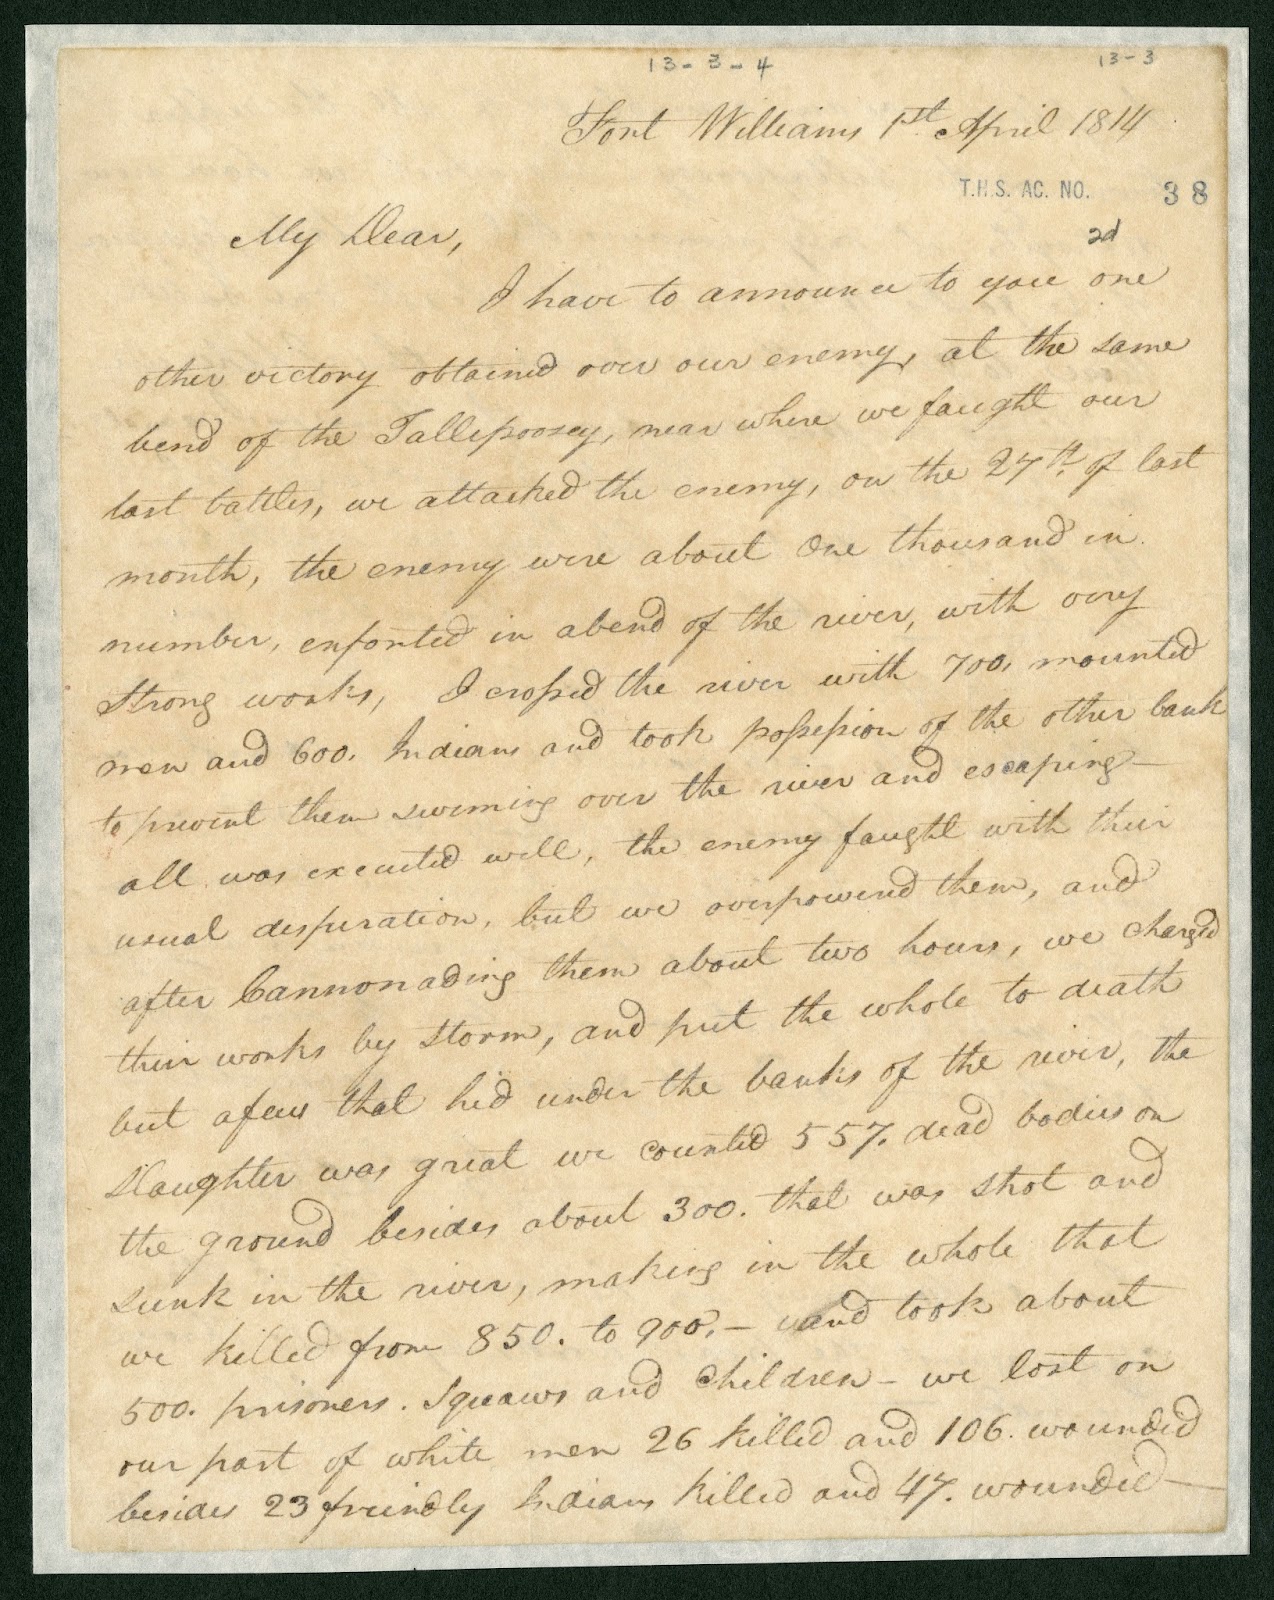 13-3-4
13-3
Fort Williams 1st April 1814
T.H.S. AC. NO. 38
My Dear,
2d
I have to announce to you one
other victory obtained over our enemy, at the same
bend of the Tallepoosey, near where we faught our
last battles, we attacked the enemy, on the 27th. of last
month, the enemy were about One thousand in
number, enforted in a bend of the river, with very
Strong works, I crossed the river with 700, mounted
men and 600. Indians and took possession of the other bank
to prevent them swiming over the river and escaping—
all was executed well, the enemy faught with their
usual desperation, but we overpowered them, and
after Cannonading them about two hours, we charged
their works by storm, and put the whole to death
but a few that hid under the banks of the river, the
Slaughter was great we counted 557. dead bodies on
the ground besides about 300. that was shot and
sunk in the river, making in the whole that
we killed from 850. to 900.— and took about
500. prisoners. Squaws and Children— we lost on
our part of white men 26 killed and 106. wounded
besides 23 freindly Indians killed and 47. wounded—